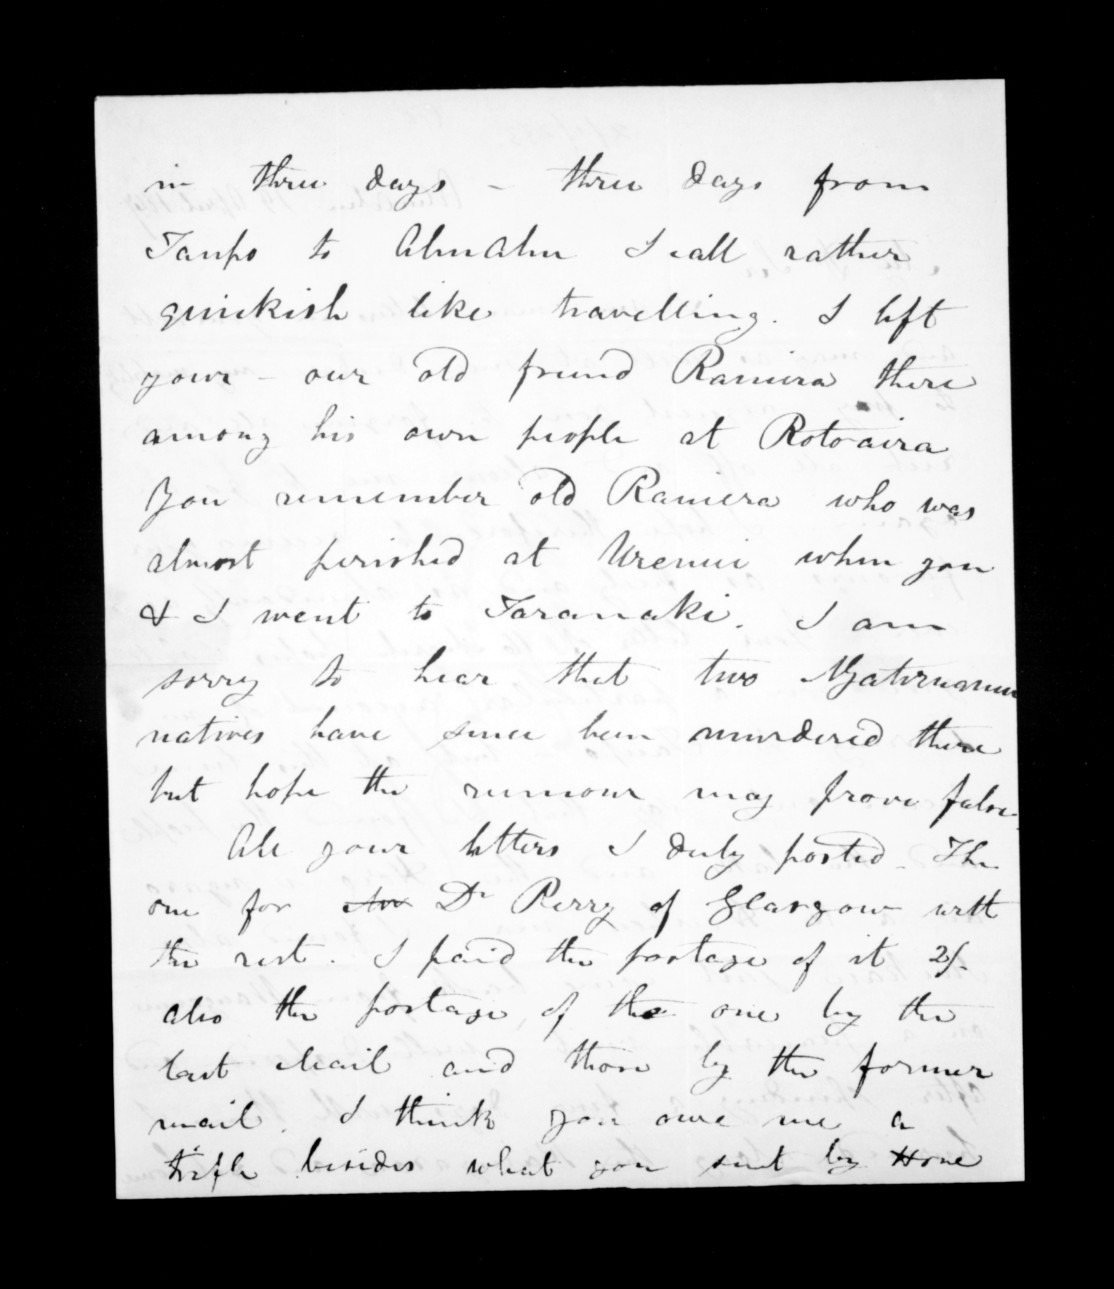 in three days – three days from
Taupo to Ahuahu I call rather
quickish like travelling. I left
your – our old friend Raniera there
among his own people at Roto-aira
You remember old Raniera who was
almost perished at Urenui when you
& I went to Taranaki. I am
sorry to hear that two Ngatiruanui
natives have since been murdered there
but hope the rumour may prove false.
All your letters I duly posted. The
one for Dr Perry of Glasgow with
the rest. I paid the postage of it 2/-
also the postage of the one by the
last Mail and those by the former
mail. I think you owe me a
trifle besides what you sent by Hone